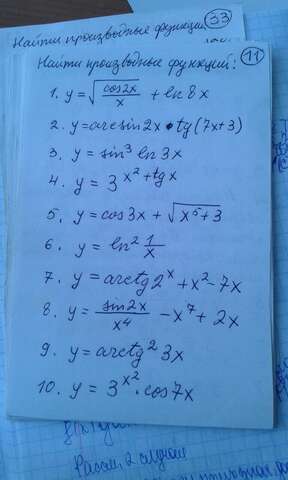 33
Найти производные функции
Найти производные функций: 11
1. y = √(cos2x/x) + ln 8x
2. y = arcsin2x • tg(7x+3)
3. y = sin³ ln 3x
4. y = 3^(x²+tgx)
5. y = cos3x + √(x⁵+3)
6. y = ln² 1/x
7. y = arctg 2ˣ + x² – 7x
8. y = sin2x/x⁴ – x⁷ + 2x
9. y = arctg² 3x
10. y = 3^(x²) · cos7x
Рассм. 2 случая